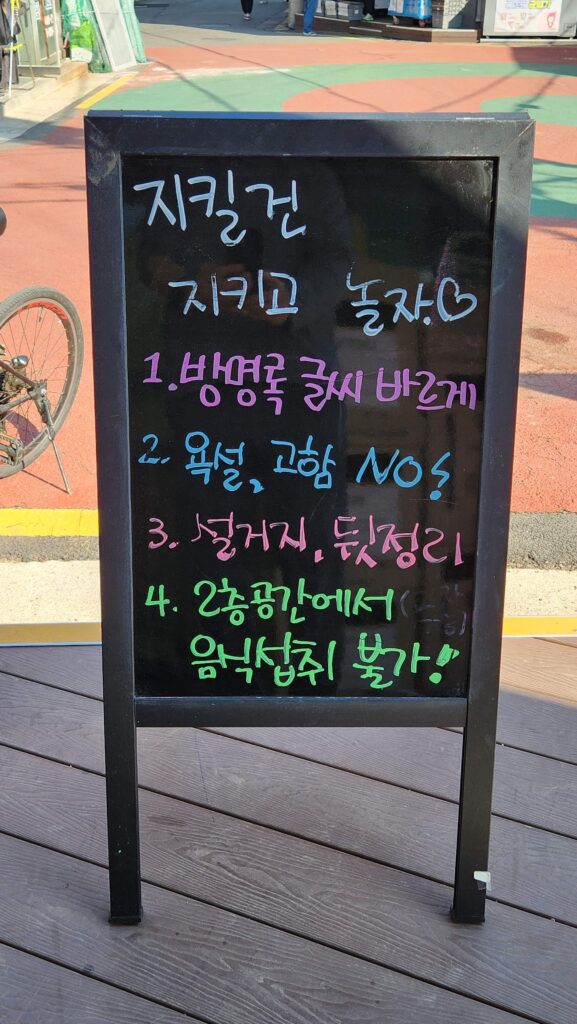 지킬건
지키고 놀자.♡
1. 방명록 글씨 바르게
2. 욕설, 고함 NO!
3. 설거지, 뒷정리
4. 2층공간에서
음식섭취 불가!!